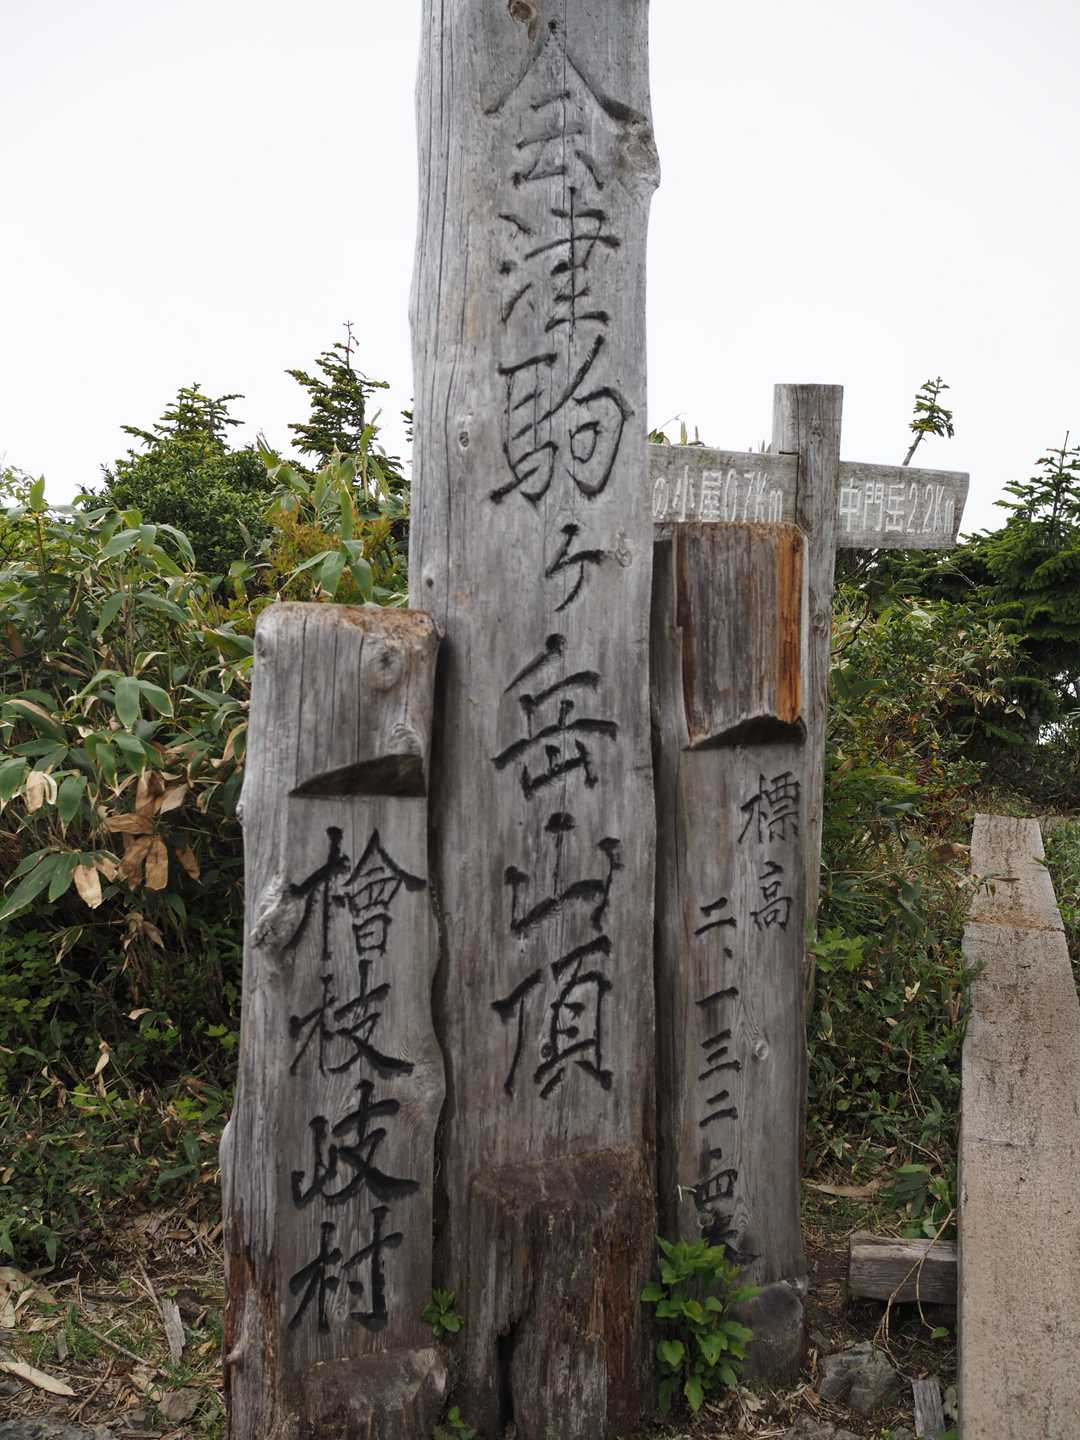 会津駒ヶ岳山頂
檜枝岐村
標高
二、一三二・四米
の小屋0.7Km
中門岳2.2Km